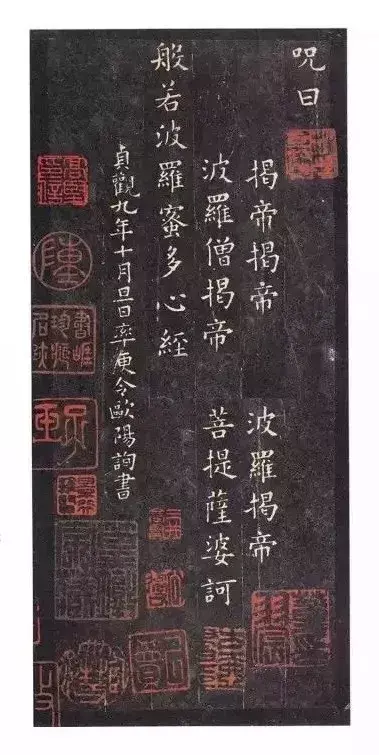 咒曰
揭帝揭帝 波羅揭帝
波羅僧揭帝 菩提薩婆訶
般若波羅蜜多心經
貞觀九年十月旦日率更令歐陽詢書